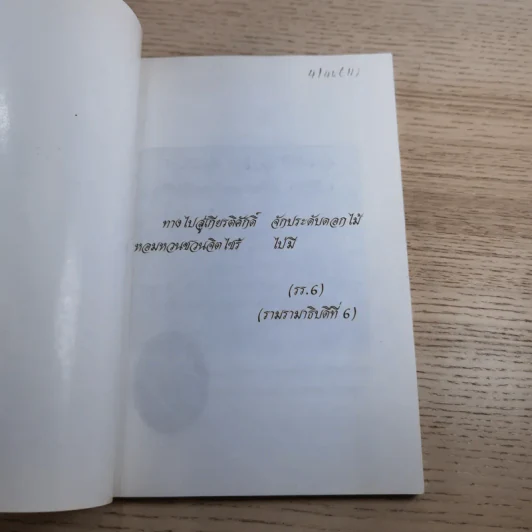 4/42 (11)
ทางไปสู่เกียรติศักดิ์ จักประดับดอกไม้
หอมหวนชวนจิตไซร้ ไป่มี
(รร.6)
(รามรามาธิบดีที่ 6)